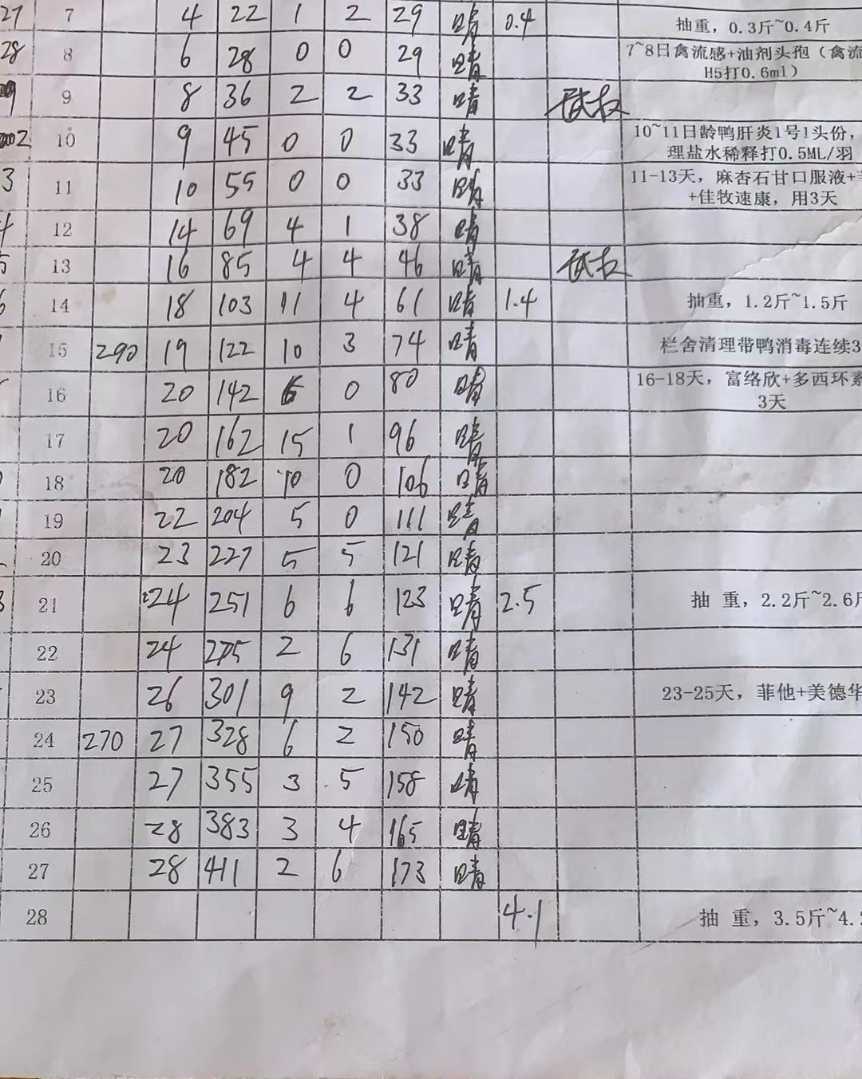 27 7 4 22 1 2 29 晴 0.4 抽重，0.3斤~0.4斤
28 8 6 28 0 0 29 晴 7~8日禽流感+油剂头孢（禽流
H5打0.6ml）
9 8 36 2 2 33 晴
10 9 45 0 0 33 晴 10~11日龄鸭肝炎1号1头份，
理盐水稀释打0.5ML/羽
3 11 10 55 0 0 33 晴 11-13天，麻杏石甘口服液+
+佳牧速康，用3天
4 12 14 69 4 1 38 晴
5 13 16 85 4 4 46 晴
6 14 18 103 11 4 61 晴 1.4 抽重，1.2斤~1.5斤
15 290 19 122 10 3 74 晴 栏舍清理带鸭消毒连续3
16 20 142 6 0 80 晴 16-18天，富络欣+多西环素
3天
17 20 162 15 1 96 晴
18 20 182 10 0 106 晴
19 22 204 5 0 111 晴
20 23 227 5 5 121 晴
21 24 251 6 6 123 晴 2.5 抽 重，2.2斤~2.6斤
22 24 275 2 6 131 晴
23 26 301 9 2 142 晴 23-25天，菲他+美德华
24 270 27 328 6 2 150 晴
25 27 355 3 5 158 晴
26 28 383 3 4 165 晴
27 28 411 2 6 173 晴
28 4.1 抽 重，3.5斤~4.2